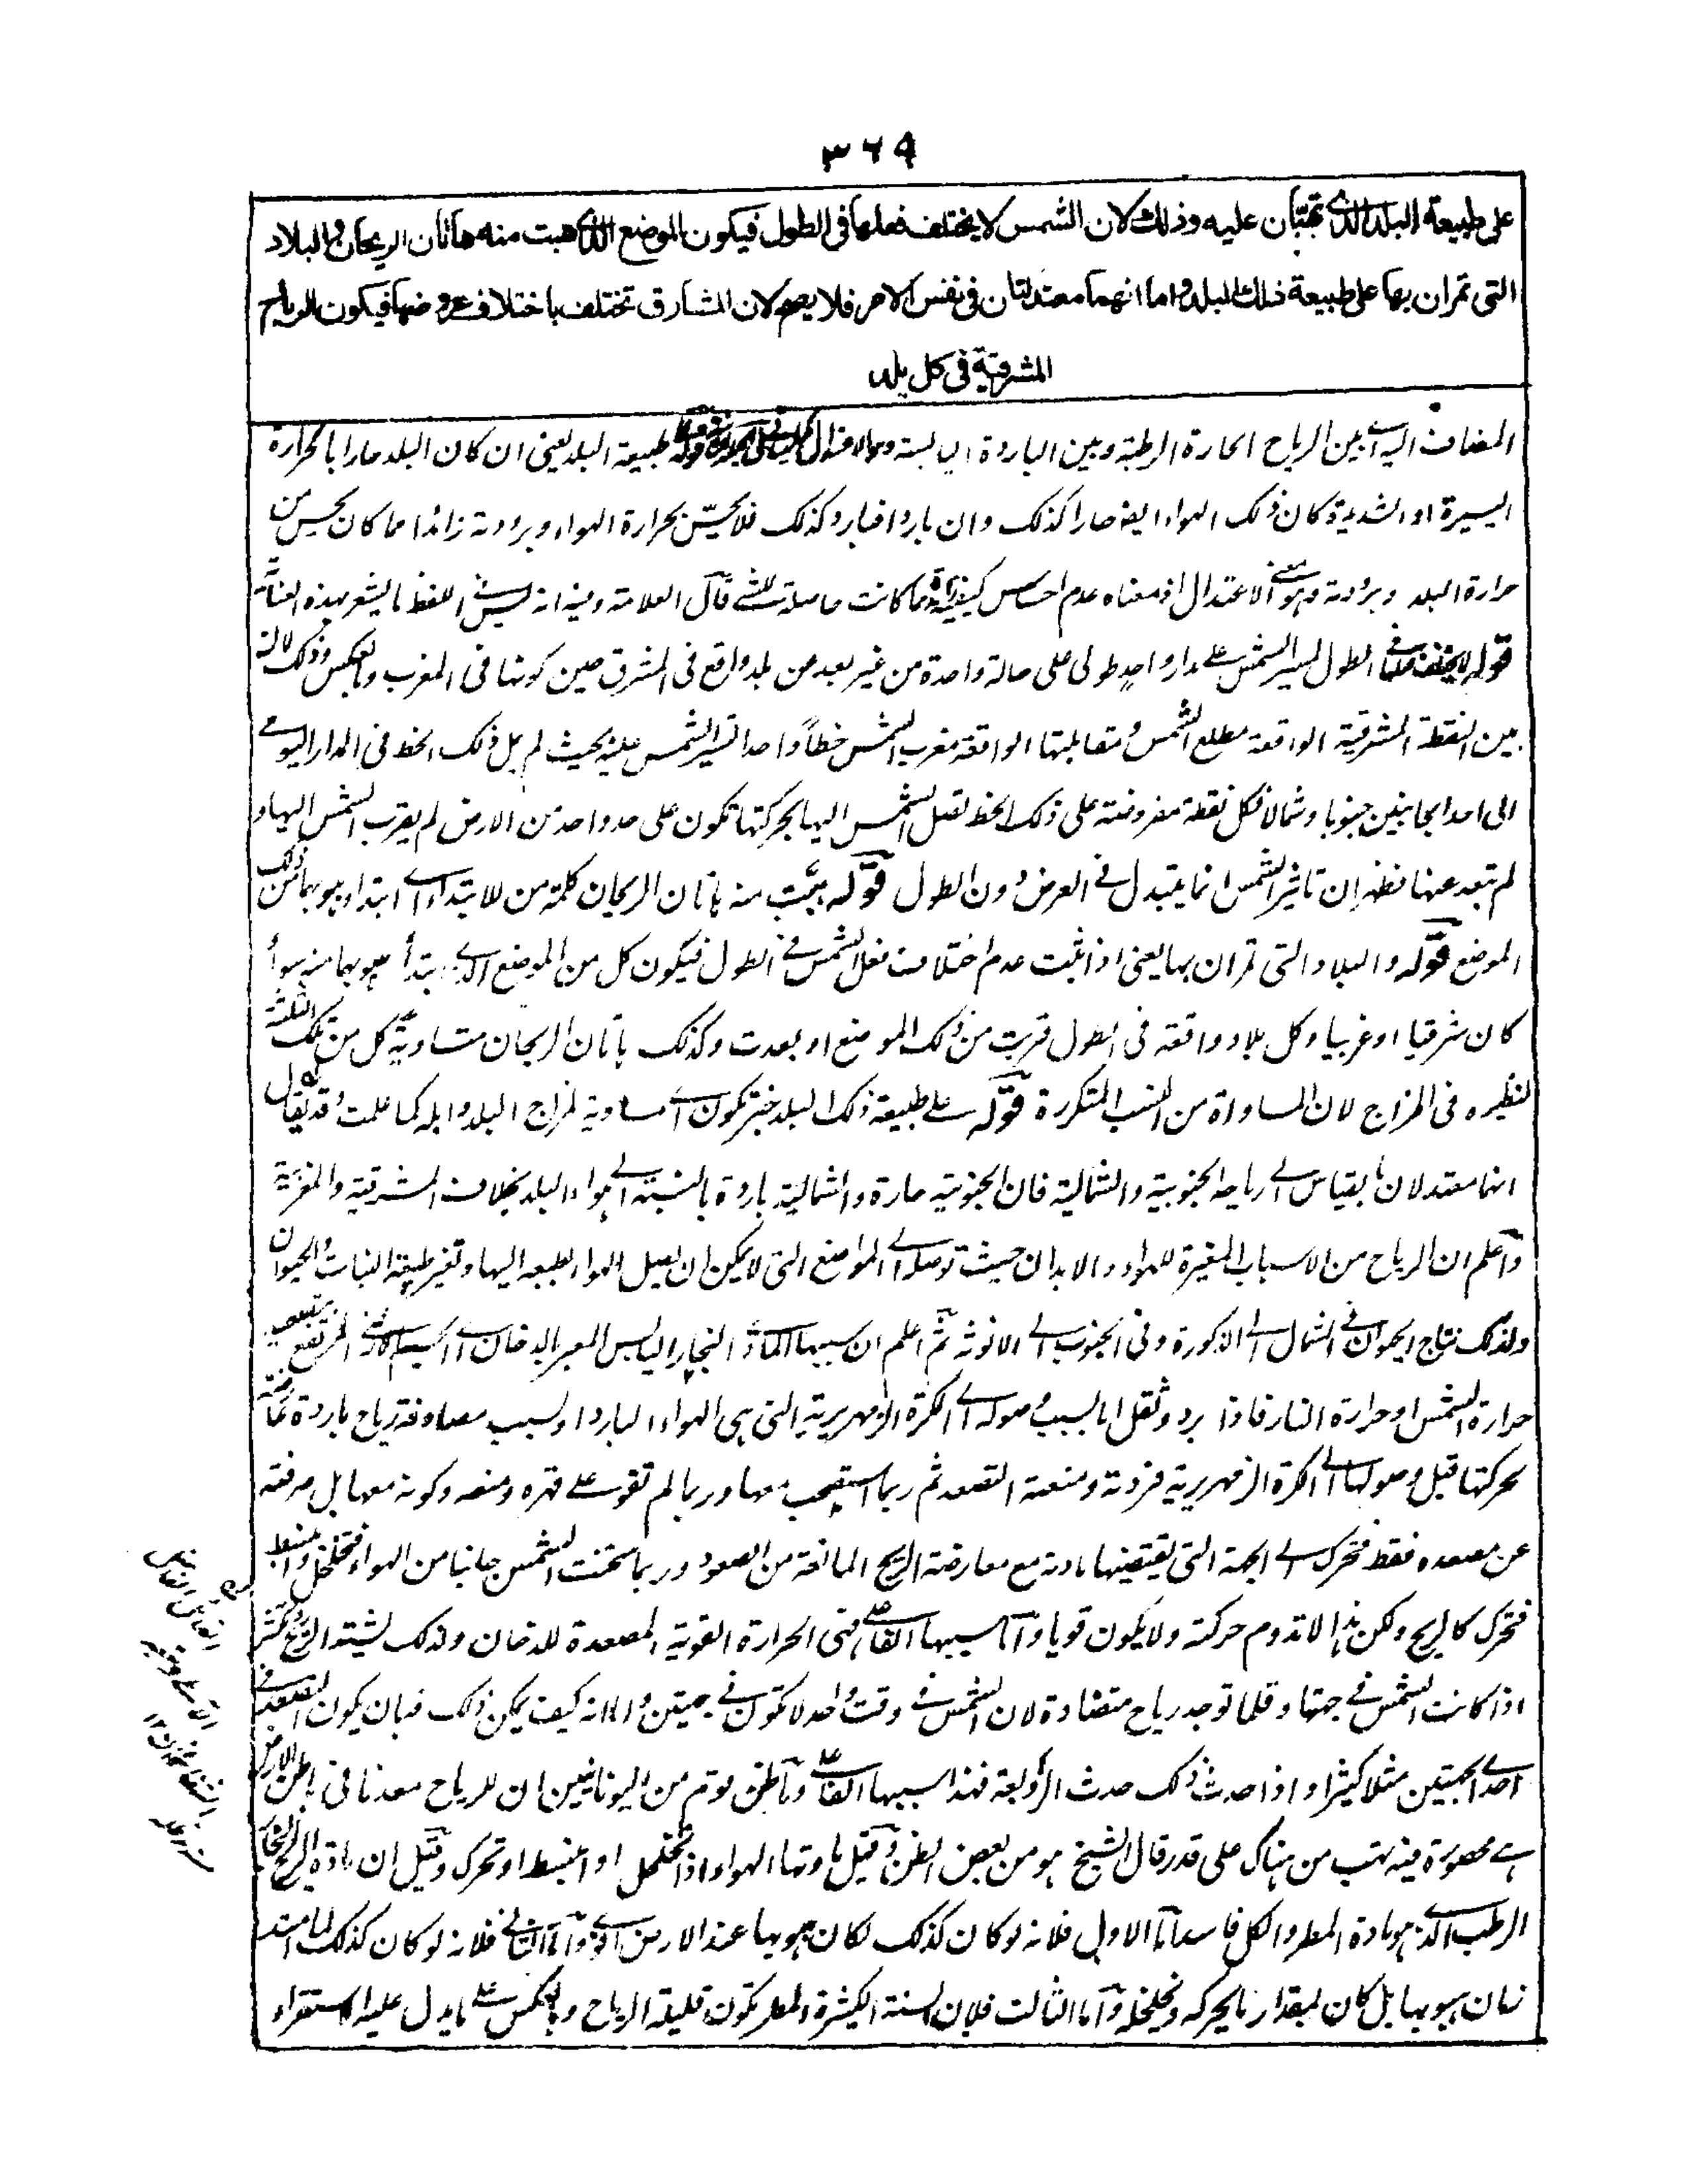 ٣٦٩
على طبيعة البلد الذى تهبّان عليه وذلك لان الشمس لا يختلف فعلها فى الطول فيكون الموضع الذى هبت منه هاتان الريحان والبلاد
التى تمران بها على طبيعة ذلك البلد واما انهما معتدلتان فى نفس الامر فلا يصح لان المشارق تختلف باختلاف عروضها فيكون الرياح
المشرقية فى كل بلد
المضاف اليه اے بين الرياح الحارة الرطبة وبين الباردة اليابسة طبيعة البلد يعنى ان كان البلد حارا بالحرارة
اليسيرة او الشديدة كان ذلك الهواء ايضا حارا كذلك وان باردا فبارد كذلك فلا يحسّ بحرارة الهواء وبرودته زائدا مما كان يحس من
حرارة البلد وبرودته وهو معنے الاعتدال اذ معناه عدم احساس كيفية زائدة مما كانت حاصلة للشے قال العلامة وفيه انه ليس فے اللفظ ما يشعر بهذه العناية
قوله لا يختلف فعلها فے الطول لسير الشمس علے مدار واحد طولى على حالة واحدة من غير بعد من بلد واقع فى المشرق حين كونها فى المغرب وبالعكس وذلك لان
بين النقطة المشرقية الواقعة مطلع الشمس ومقابلتها الواقعة مغرب الشمس خطا واحدا تسير الشمس عليه بحيث لم يمل ذلك الخط فى المدار اليومے
الى احد الجانبين جنوبا وشمالا فكل نقطة مفروضة على ذلك الخط تصل الشمس اليها بحركتها تكون على حد واحد من الارض لم يقرب الشمس اليها و
لم تبعد عنها فظهر ان تاثير الشمس انما يتبدل فے العرض دون الطول قوله هبّت منه هاتان الريحان كلمة من للابتداء اے ابتداء هبوبهما من ذلك
الموضع قوله والبلاد التى تمران بها يعنى اذا ثبت عدم اختلاف فعل الشمس فے الطول فيكون كل من الموضع الذے ابتدأ هبوبهما منه سواء
كان شرقيا او غربيا وكل بلاد واقعة فى الطول قربت من ذلك الموضع او بعدت وكذلك هاتان الريحان متساوية كل من تلك الثلثة
لنظيره فى المزاج لان المساواة من النسب المتكررة قوله علے طبيعة ذلك البلد خبر تكون اے مساوية لمزاج البلد واهله كما علمت وقد يقال
انهما معتدلان بالقياس الے رياحه الجنوبية والشمالية فان الجنوبية حارة والشمالية باردة بالنسبة الے هواء البلد بخلاف المشرقية والمغربية
واعلم ان الرياح من الاسباب المغيرة للهواء والابدان حيث توصله الے المواضع التى لا يمكن ان يصل الهواء بطبعه اليها وتغير طبيعة النبات والحيوان
ولذلك نتاج الحيوان فے الشمال الے الذكورة وفى الجنوب الے الانوثة ثم اعلم ان سببها المادے البخار اليابس المعبر بالدخان المرتفع
حرارة الشمس او حرارة النار فاذا برد وثقل اما بسبب وصوله الے الكرة الزمهريرية التى هى الهواء البارد او بسبب مصادفة رياح باردة
بحركتها قبل وصولها الے الكرة الزمهريرية فردته ومنعته التصعد ثم ربما استصحب معها وربما لم تقو علے قهره ومنعه وكونه معها بل صرفته
عن مصعده فقط فتحرك الے الجهة التى يقتضيها مادته مع معارضة الريح المانعة من الصعود وربما سخنت الشمس جانبا من الهواء فتخلخل وانبسط
فتحرك كالريح ولكن هذا لا تدوم حركته ولا يكون قويا واما سببها الفاعلے فهى الحرارة القوية المصعدة للدخان ولذلك
اذا كانت الشمس فے جهتها وقلما توجد رياح متضادة لان الشمس فے وقت واحد لا تكون فے جهتين واما انه كيف يمكن ذلك فبان يكون التصعد فے
احدے الجهتين مثلا كثيرا واذا حدث ذلك حدث الزوبعة فهذا سببها الفاعلے وما ظن قوم من اليونانيين ان للرياح معدنا فى باطن الارض
هے محصورة فيه تهب من هناك على قدر قال الشيخ هو من بعض الظن وقيل مادتها الهواء اذا تخلخل او انبسط او تحرك وقيل ان مادة الريح البخار
الرطب الذے هو مادة المطر والكل فاسد اما الاول فلانه لو كان كذلك لكان هبوبها عند الارض اقوے واما الثانے فلانه لو كان كذلك لما امتد
زمان هبوبها بل كان بمقدار ما يحركه ويخلخله واما الثالث فلان السنة الكثيرة المطر تكون قليلة الرياح وبالعكس علے ما يدل عليه الاستقراء